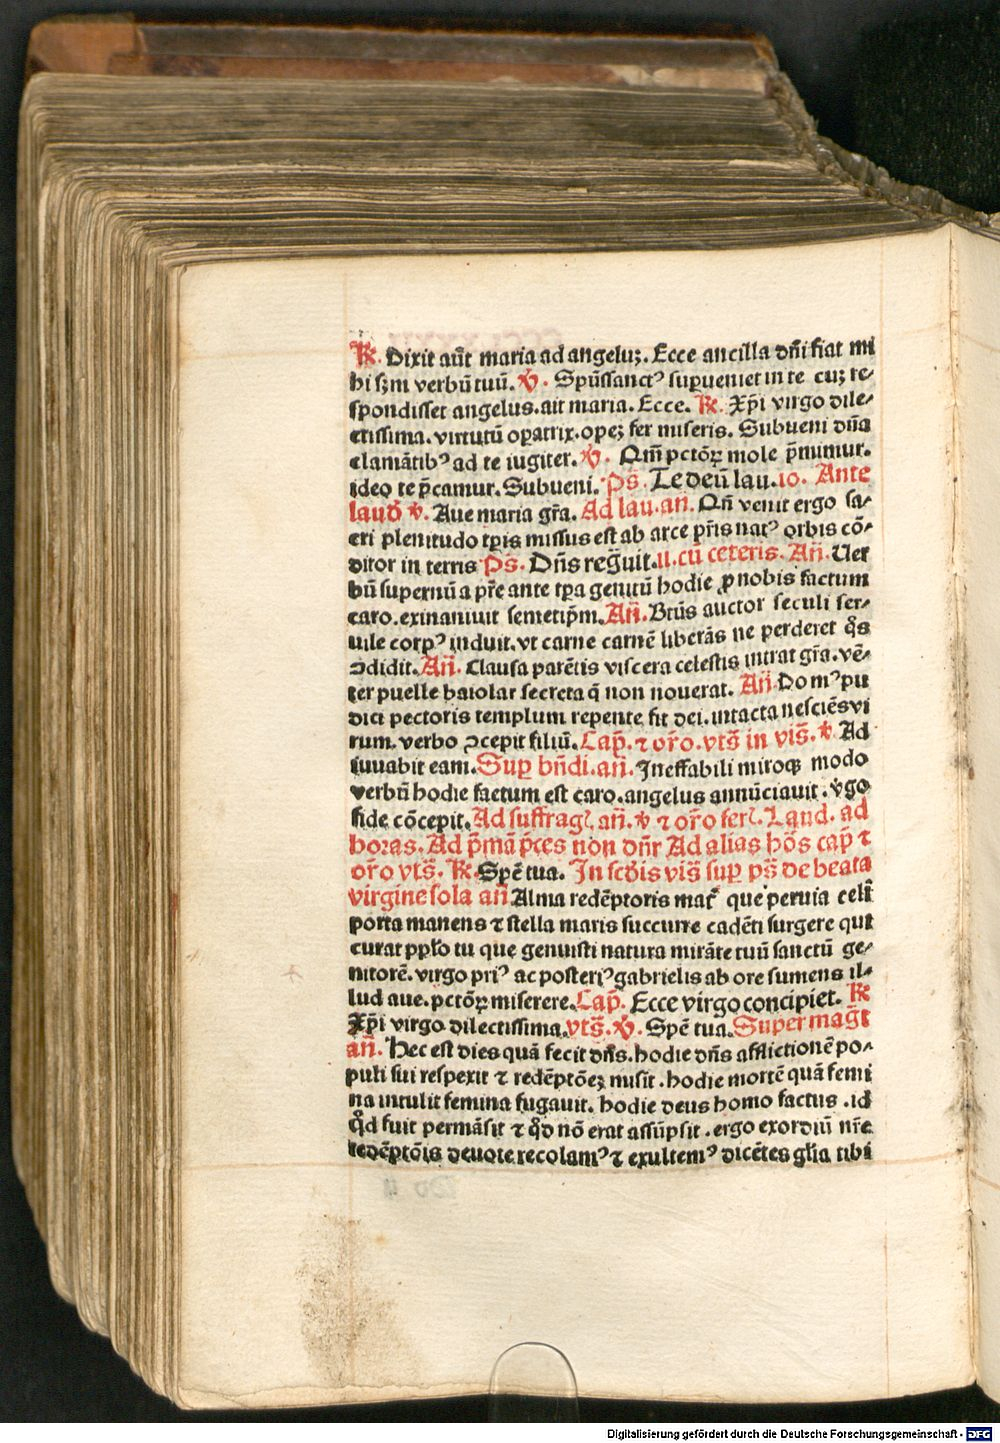 ℟. Dixit aut̄ maria ad angelūꝫ. Ecce ancilla dn̄i fiat mi
hi sꝫm verbū tuū. ℣. Spūssanctꝰ supueniet in te cuꝫ re⸗
spondisset angelus. ait maria. Ecce. ℟. Xp̄i virgo dile⸗
ctissima. virtutū oꝑatrix. opeꝫ fer miseris. Subueni dn̄a
clamātibꝰ ad te iugiter. ℣. Qm̄ pctōꝝ mole p̄mimur.
ideo te p̄camur. Subueni. Ps̄. Te deū lau. 10. Ante
laud̄ ℣. Aue maria gr̄a. Ad lau. an̄. Qn̄ venit ergo sa⸗
cri plenitudo tꝑis missus est ab arce pr̄is natꝰ orbis cō⸗
ditor in terris Ps̄. Dn̄s regn̄uit. 11. cū ceteris. An̄. Uer
bū supernū a pr̄e ante tꝑa genitū hodie ꝓ nobis factum
caro. exinaniuit semetip̄m. An̄. Btūs auctor seculi ser⸗
uile corpꝰ induit. vt carne carnē liberās ne perderet qͦs
ↄdidit. An̄. Clausa parētis viscera celestis intrat gr̄a. vē⸗
ter puelle baiolat secreta q̄ non nouerat. An̄. Domꝰ pu
dici pectoris templum repente fit dei. intacta nesciēs vi
rum. verbo ↄcepit filiū. Cap̄. ⁊ or̄o. vts̄ in vis̄. ℣. Ad
iuuabit eam. Suꝑ bn̄di. an̄. Ineffabili miroqꝫ modo
verbū hodie factum est caro. angelus annūciauit. v̄go
fide cōcepit. Ad suffragꝭ. an̄. ℣ ⁊ or̄o ferꝭ. Laud. ad
horas. Ad p̄mā p̄ces non dn̄r Ad alias ho̅s cap̄ ⁊
or̄o vts̄. ℟. Spē tua. In scd̄is vis̄ suꝑ ps̄ de beata
virgine sola an̄ Alma redēptoris mat̄ que peruia celi
porta manens ⁊ stella maris succurre cadēti surgere qui
curat pplo tu que genuisti natura mirāte tuū sanctū ge⸗
nitorē. virgo priꝰ ac posteriꝰ gabrielis ab ore sumens il⸗
lud aue. pctōꝝ miserere. Cap̄. Ecce virgo concipiet. ℟
Xp̄i virgo dilectissima. vts̄. ℣. Spē tua. Super magn̄t
an̄. Hec est dies quā fecit dn̄s. hodie dn̄s afflictionē po⸗
puli sui respexit ⁊ redēptōeꝫ misit. hodie mortē quā femi
na intulit femina fugauit. hodie deus homo factus. id
qͦd fuit permāsit ⁊ qͦd nō erat assūpsit. ergo exordiū nr̄e
redēptōis deuote recolamꝰ ⁊ exultemꝰ dicētes gl̄ia tibi
Digitalisierung gefördert durch die Deutsche Forschungsgemeinschaft - DFG